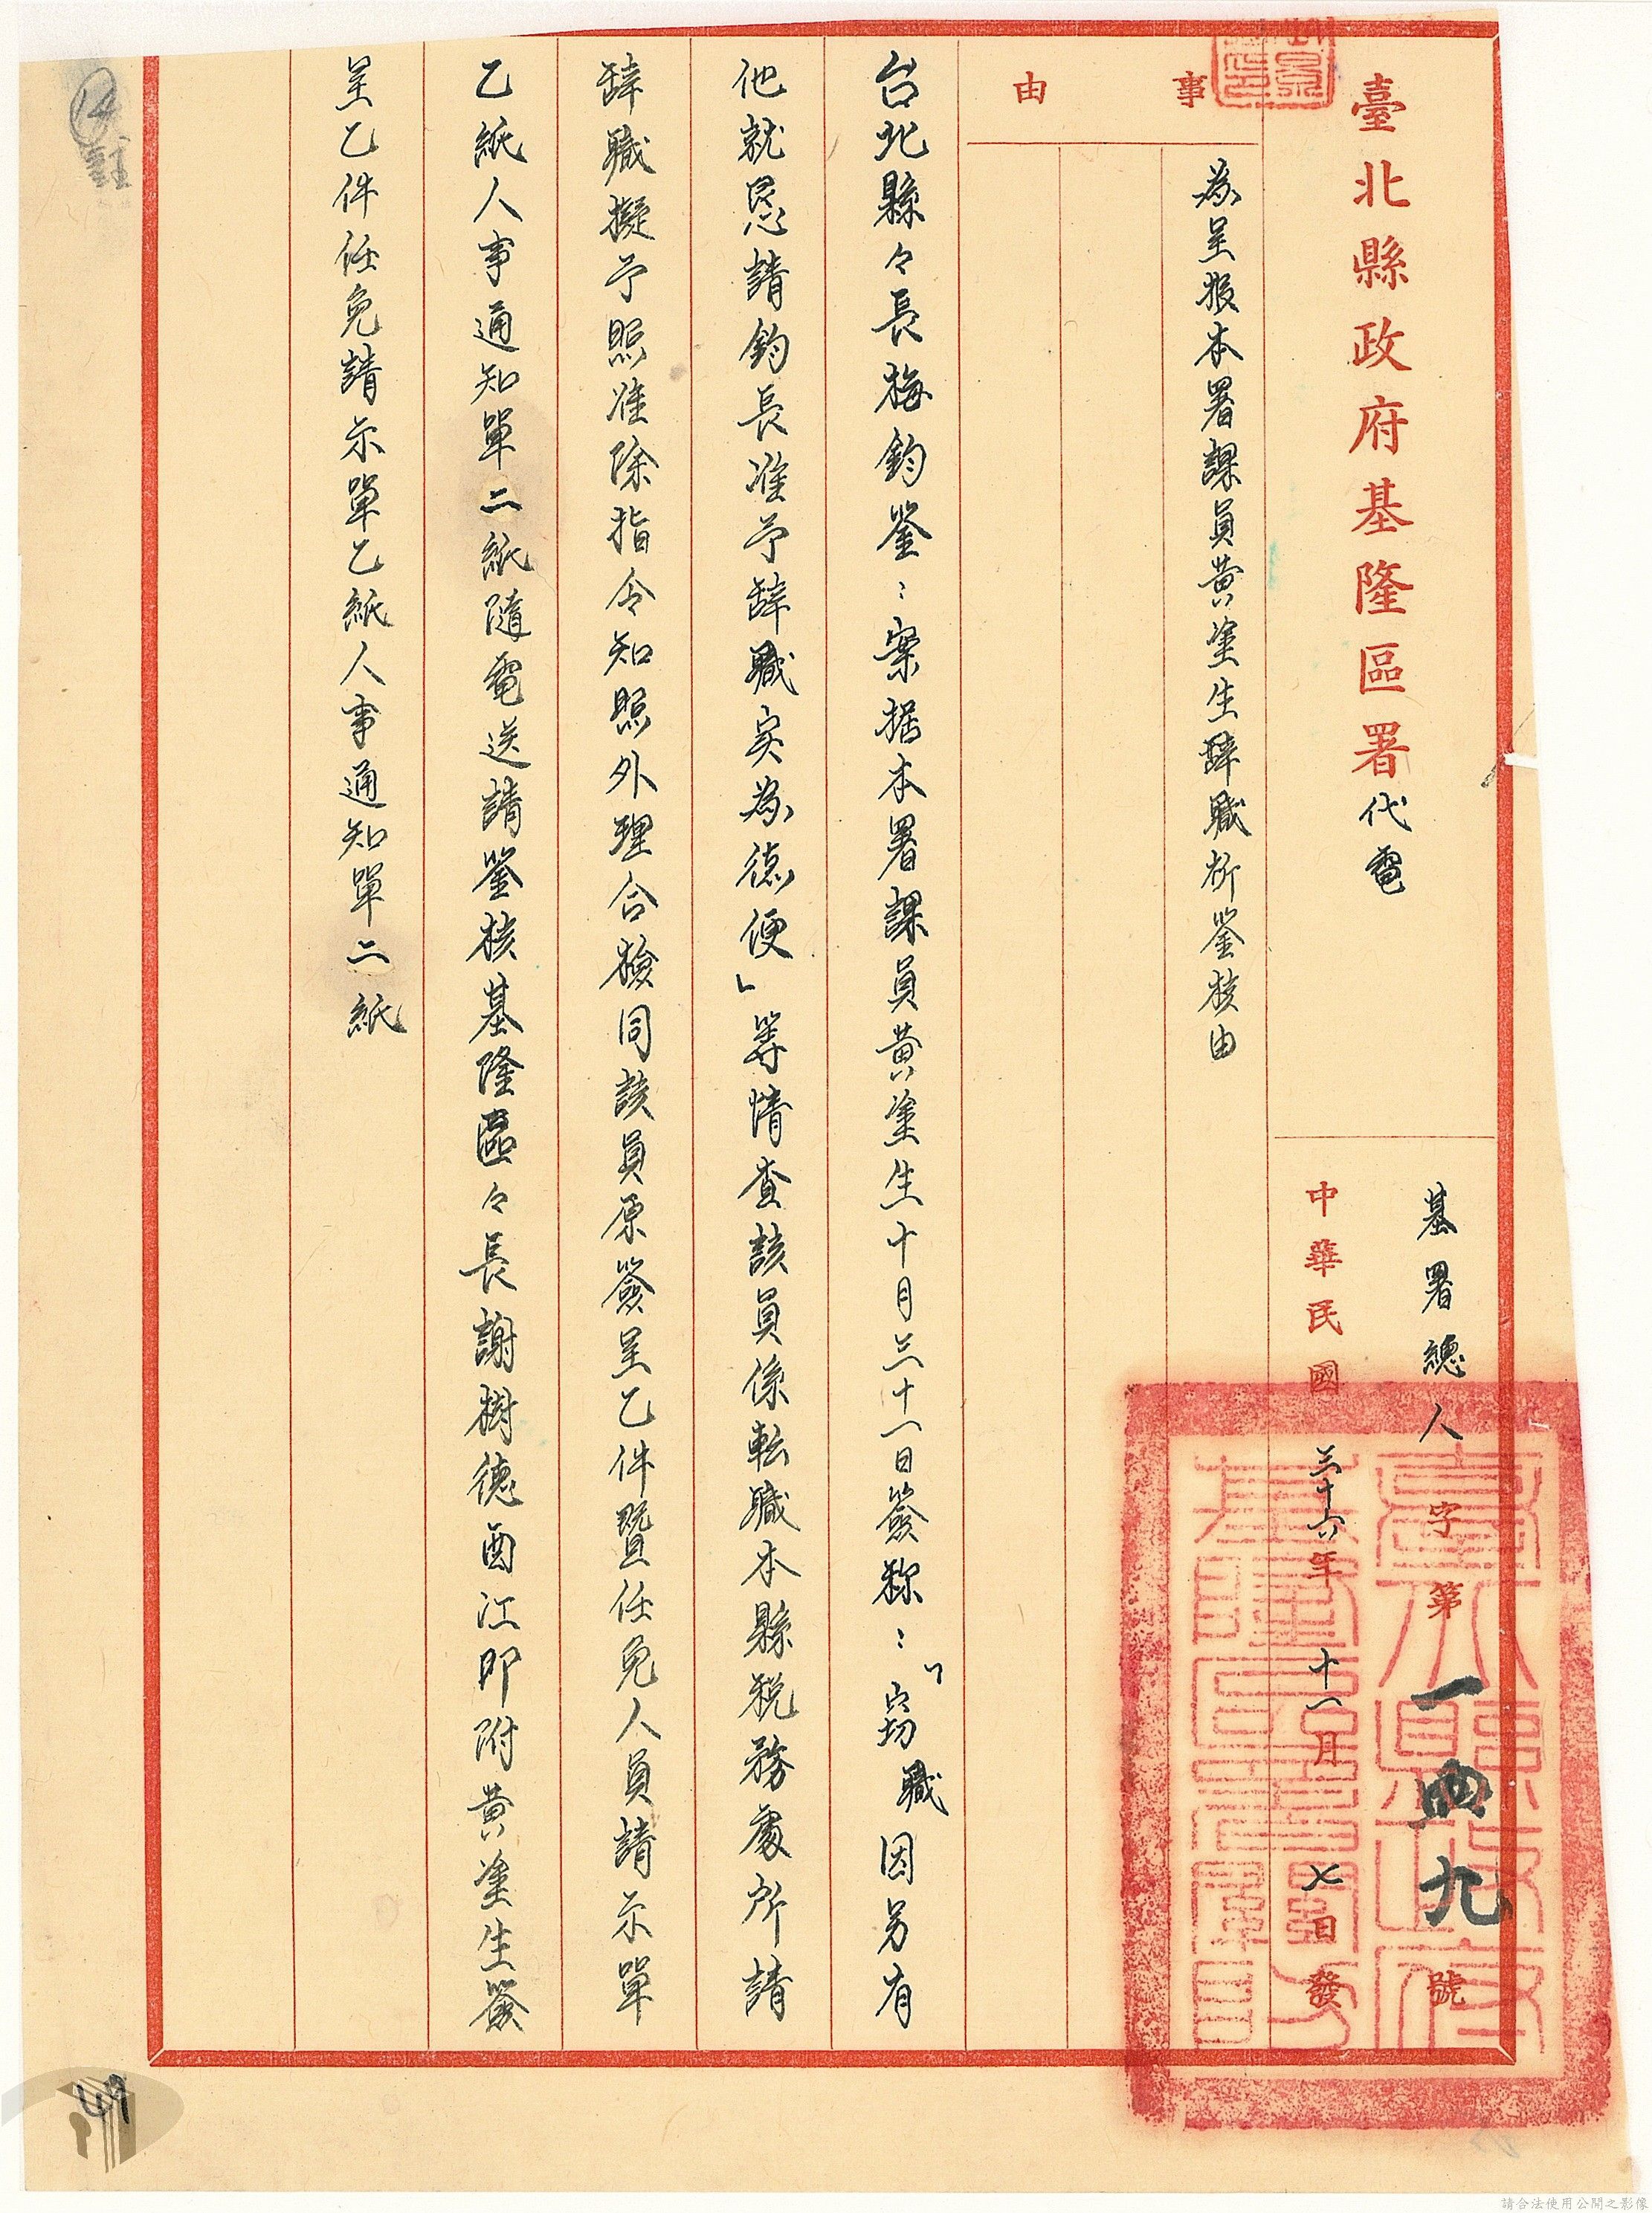 臺北縣政府基隆區署代電
基署總人字第一四九號
中華民國三十六年十一月七日發
事由
為呈报本署課員黄塗生辞職祈鉴核由
台北縣々長梅鈞鉴：案据本署課員黄塗生十月三十一日簽称：「窃職因另有
他就恳請鈞長准予辞職实為德便」等情查該員係転職本縣税務處所請
辞職擬予照准除指令知照外理合檢同該員原簽呈乙件暨任免人員請示單
乙紙人事通知單二紙隨電送請鉴核基隆區々長謝樹德酉江即附黄塗生簽
呈乙件任免請示單乙紙人事通知單二紙
49
請合法使用公開之影像